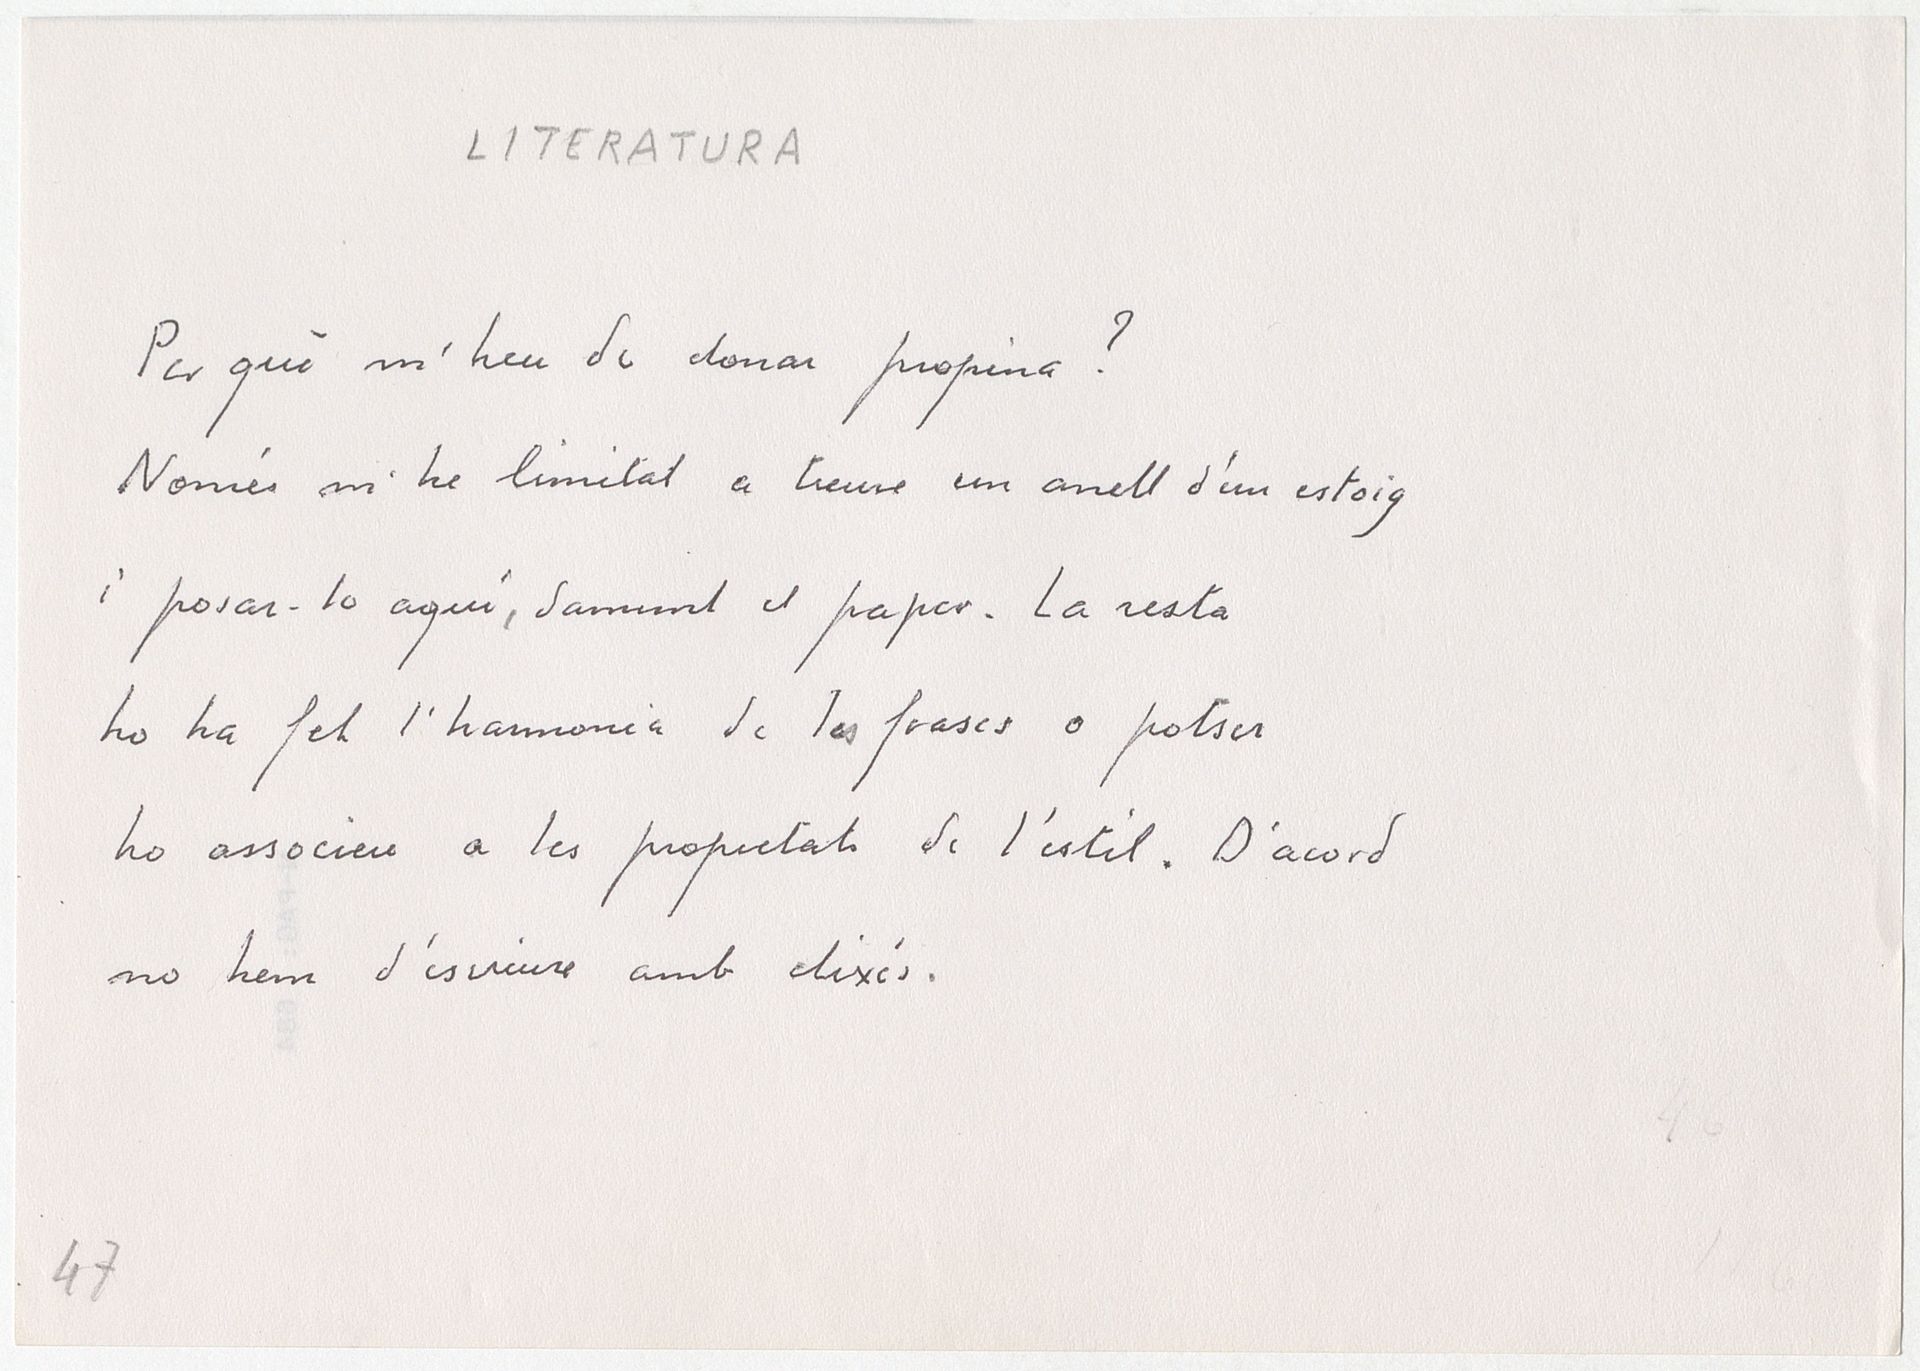 LITERATURA
Per què m'heu de donar propina?
Només m'he limitat a treure un anell d'un estoig
i posar-lo aquí, damunt el paper. La resta
ho ha fet l'harmonia de les frases o potser
ho associeu a les propietats de l'estil. D'acord
no hem d'escriure amb clixés.
46
47